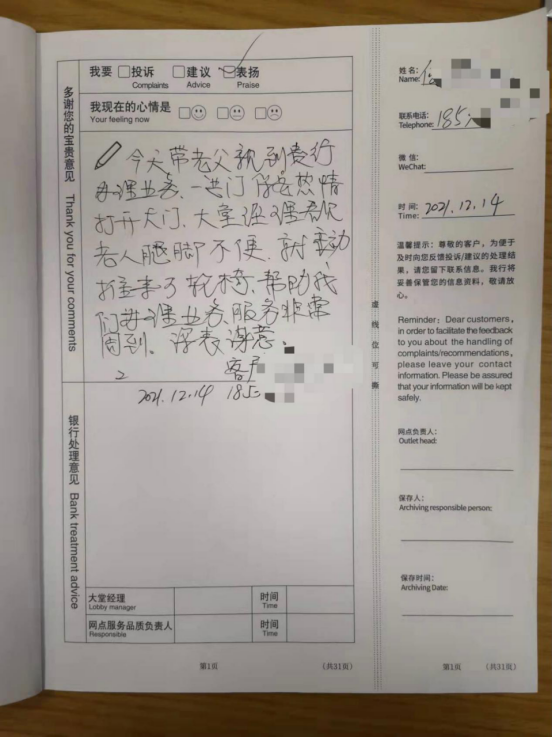 我要 □投诉 □建议 □表扬
Complaints Advice Praise
我现在的心情是
Your feeling now
多谢您的宝贵意见 Thank you for your comments
今天带老父亲到贵行
办理业务、一进门保安热情
打开大门、大堂经理看见
老人腿脚不便、就主动
推来了轮椅、帮助我
们办理业务、服务非常
周到、深表谢意。
客户
2021.12.14 185
银行处理意见 Bank treatment advice
大堂经理
Lobby manager
时间
Time
网点服务品质负责人
Responsible
时间
Time
第1页 (共31页)
虚线位可撕
姓名:
Name:
联系电话:
Telephone: 185
微信:
WeChat:
时间:
Time: 2021.12.14
温馨提示:尊敬的客户,为便于
及时向您反馈投诉/建议的处理结
果,请您留下联系信息。我行将
妥善保管您的信息资料,敬请放
心。
Reminder: Dear customers,
in order to facilitate the feedback
to you about the handling of
complaints/recommendations,
please leave your contact
information. Please be assured
that your information will be kept
safely.
网点负责人:
Outlet head:
保存人:
Archiving responsible person:
保存时间:
Archiving Date:
第1页 (共31页)